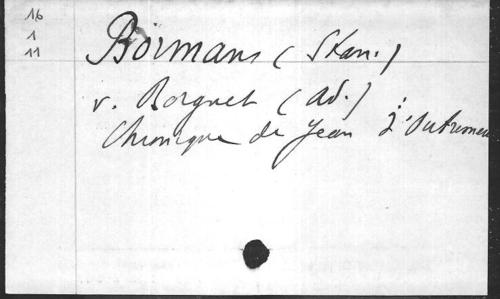 16
1
11
Bormans (Stan.)
v. Borgnet (Ad.) :
Chronique de Jean d'Outremeu